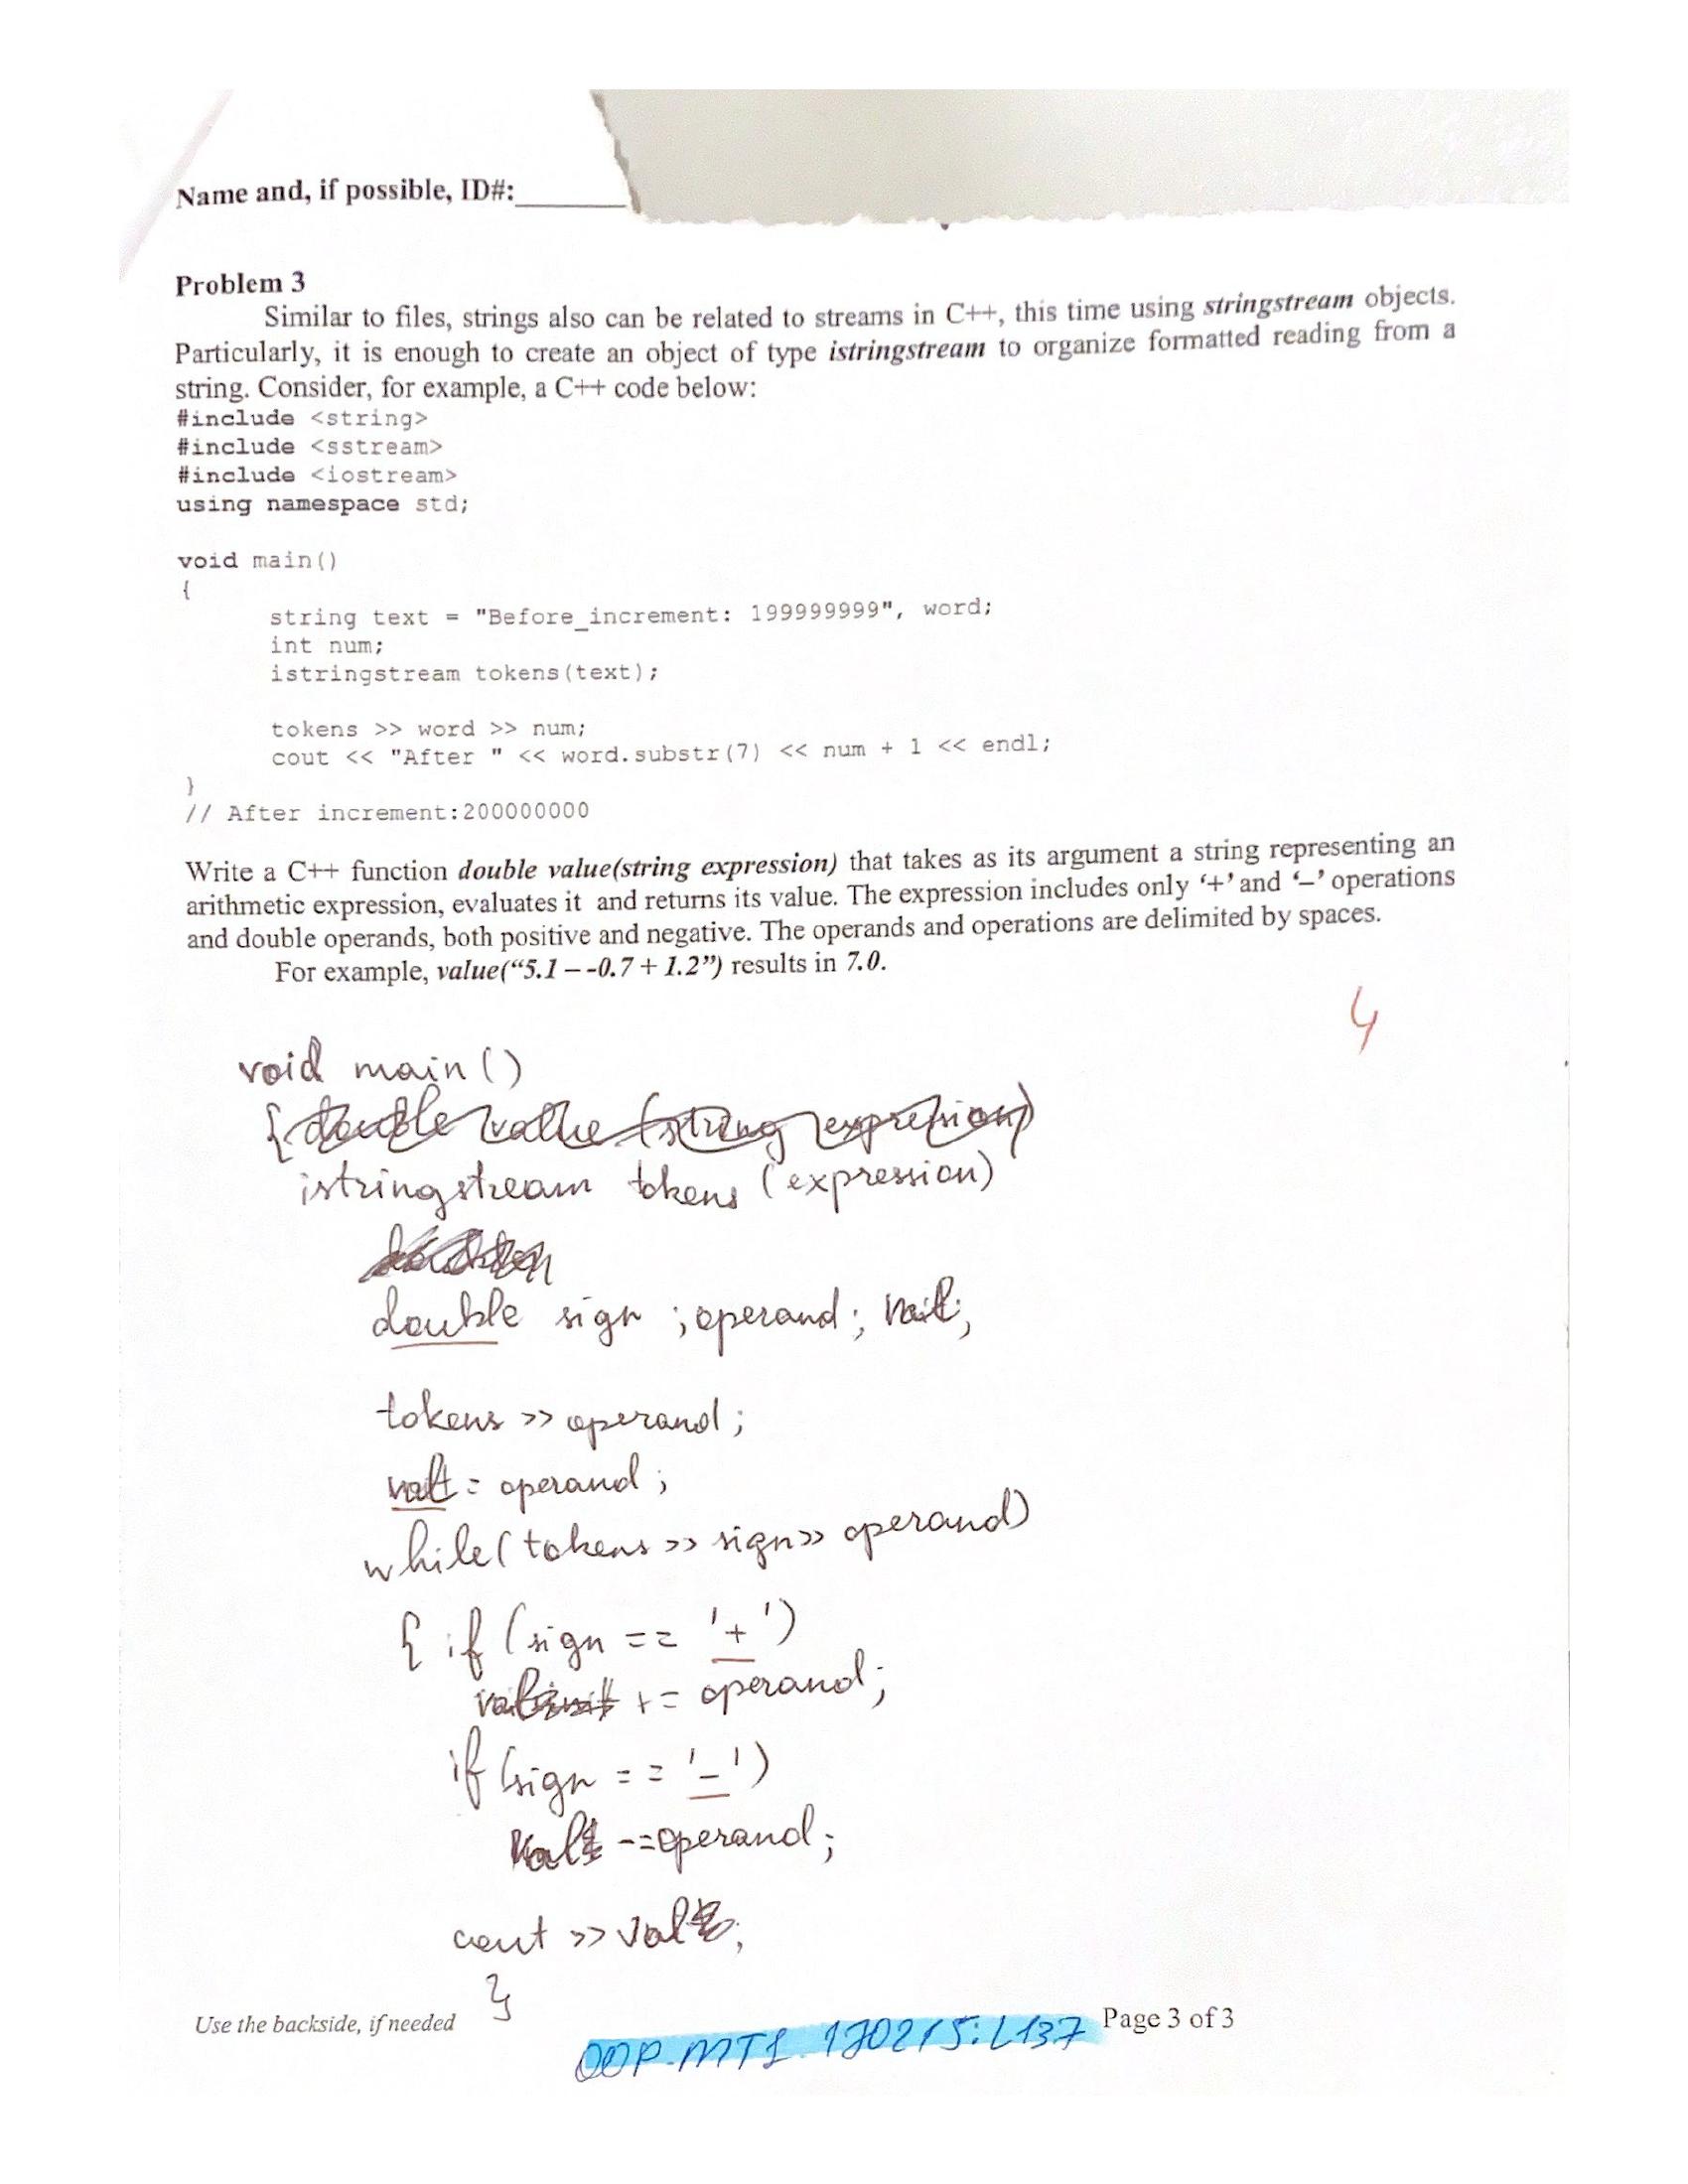 Name and, if possible, ID#:
Problem 3
Similar to files, strings also can be related to streams in C++, this time using stringstream objects.
Particularly, it is enough to create an object of type istringstream to organize formatted reading from a
string. Consider, for example, a C++ code below:
#include <string>
#include <sstream>
#include <iostream>
using namespace std;
void main()
{
string text = "Before_increment: 199999999", word;
int num;
istringstream tokens(text);
tokens >> word >> num;
cout << "After " << word.substr(7) << num + 1 << endl;
}
// After increment:200000000
Write a C++ function double value(string expression) that takes as its argument a string representing an
arithmetic expression, evaluates it and returns its value. The expression includes only ‘+’ and ‘–’ operations
and double operands, both positive and negative. The operands and operations are delimited by spaces.
For example, value(“5.1 – -0.7 + 1.2”) results in 7.0.
4
void main()
{ double value (string expression)
istringstream tokens (expression)
double sign ; operand ; val;
tokens >> operand ;
val = operand ;
while( tokens >> sign >> operand)
{ if (sign == '+')
val += operand ;
if (sign == '-')
val -= operand ;
cout >> val ;
}
Use the backside, if needed
Page 3 of 3
OOP. MT1. 170215: L137